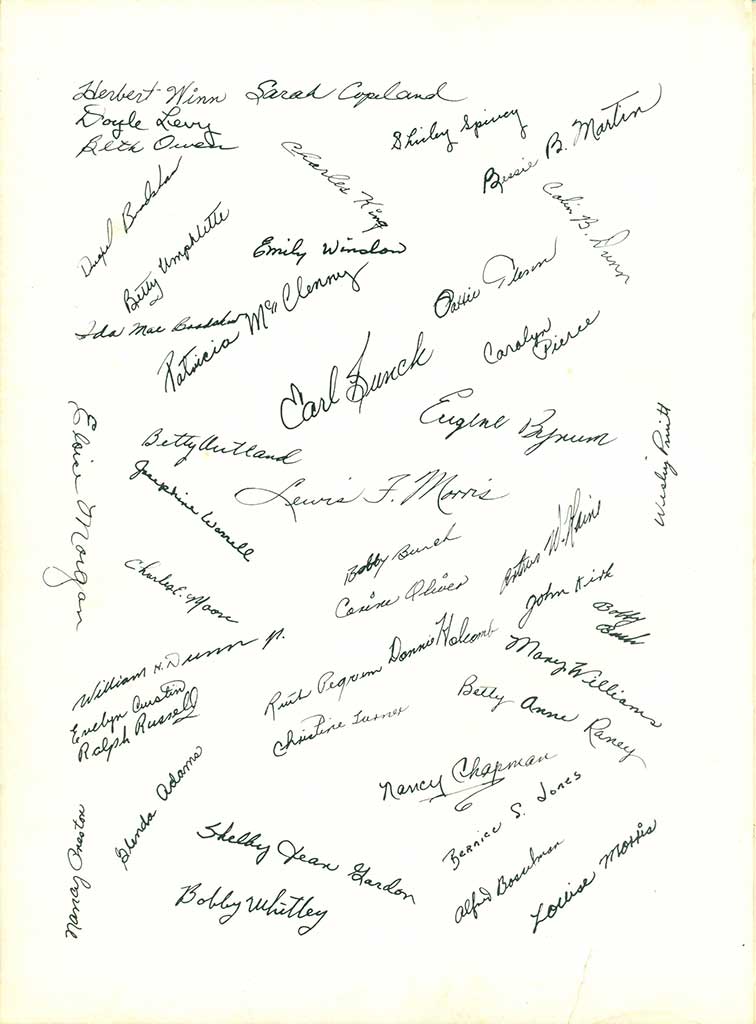 Herbert Winn Sarah Copeland
Doyle Levy
Beth Owen
Shirley Spivey
Bessie B. Martin
Charles King
Colin B. Dunn
Bradshaw
Betty Umphlette
Emily Winslow
Ida Mae Bradshaw
Patricia McClenny
Glenn
Carolyn
Pierce
Carl Bunch
Eugene Bynum
Eloise Morgan
Betty Outland
Josephine Worrell
Lewis F. Morris
Wesley Pruitt
Bobby Bunch
Corine Oliver
W.
Charles E. Moore
John Kirk
Bobby
William H. Dunn Jr.
Ruth Pegram
Donnie Holcomb
Mary Williams
Evelyn Austin
Ralph Russell
Christine Turner
Betty Anne Raney
Nancy Chapman
Glenda Adams
Bernice S. Jones
Preston
Shelby Jean Gordon
Alfred
Louise Morris
Bobby Whitley